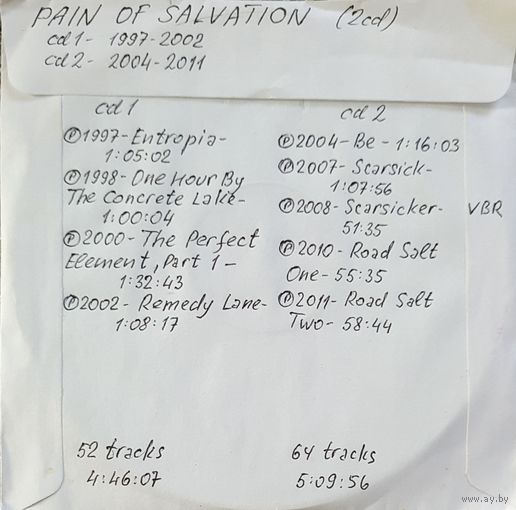 PAIN OF SALVATION (2cd)
cd 1 - 1997-2002
cd 2 - 2004-2011
cd 1
Ⓟ1997-Entropia-
1:05:02
Ⓟ1998-One Hour By
The Concrete Lake-
1:00:04
Ⓟ2000-The Perfect
Element, Part 1-
1:32:43
Ⓟ2002-Remedy Lane-
1:08:17
52 tracks
4:46:07
cd 2
Ⓟ2004-Be-1:16:03
Ⓟ2007-Scarsick-
1:07:56
Ⓟ2008-Scarsicker-
51:35
Ⓟ2010-Road Salt
One-55:35
Ⓟ2011-Road Salt
Two-58:44
64 tracks
5:09:56
VBR
www.ay.by